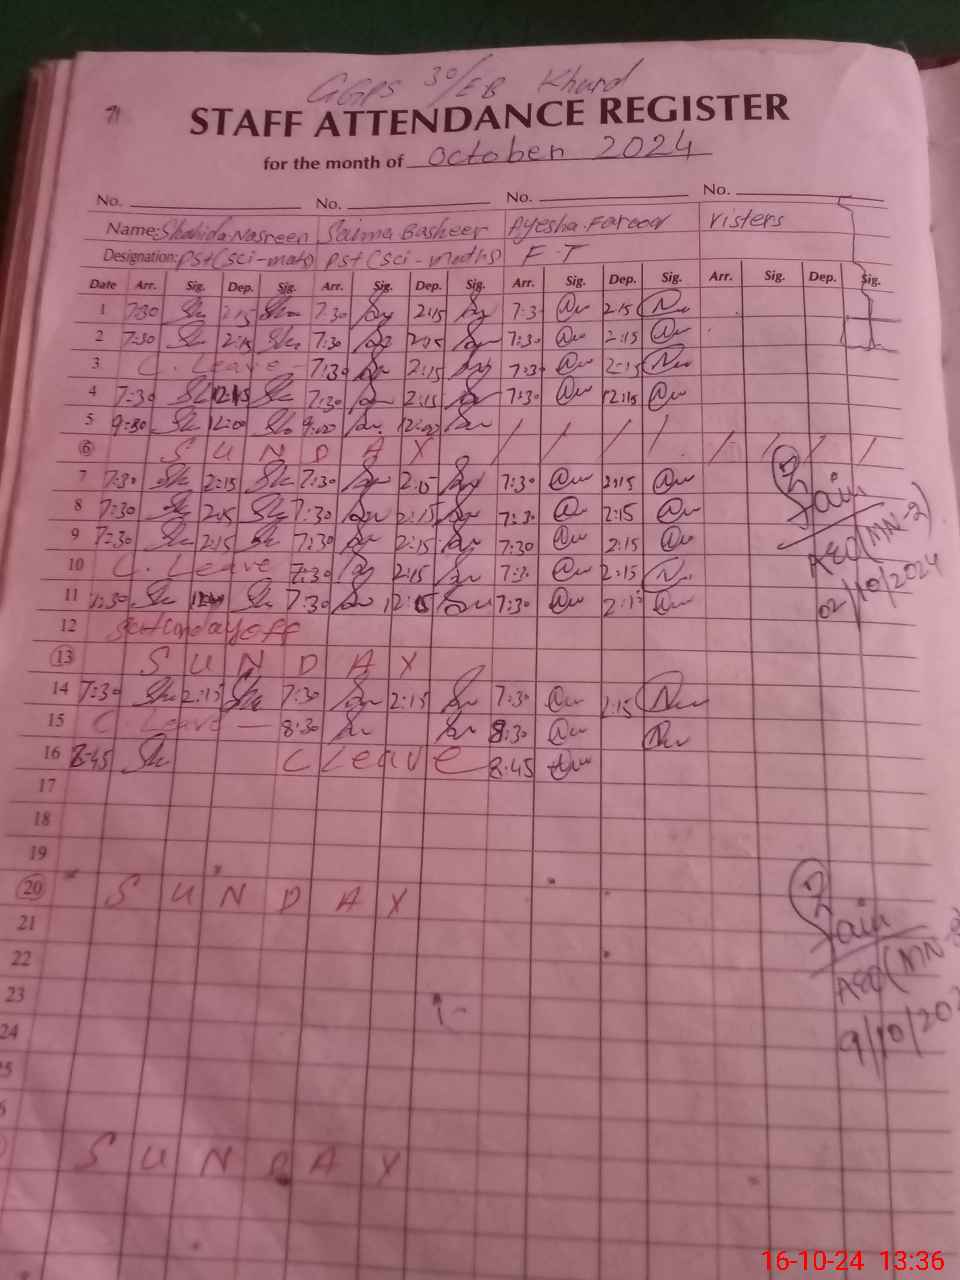 71
GGPS 30/EB Khurd
STAFF ATTENDANCE REGISTER
for the month of October 2024
No. No. No. No.
Name: Shahida Nasreen Saima Basheer Ayesha Fareed visiters
Designation: PST (Sci-math) PST (Sci-maths) F.T
Date Arr. Sig. Dep. Sig. Arr. Sig. Dep. Sig. Arr. Sig. Dep. Sig. Arr. Sig. Dep. Sig.
1 7:30 2:15 7:30 2:15 7:30 2:15
2 7:30 2:15 7:30 2:15 7:30 2:15
3 C. Leave 7:30 2:15 7:30 2:15
4 7:30 12:15 7:30 2:15 7:30 12:15
5 9:00 12:00 9:00 12:00
6 S U N D A Y
7 7:30 2:15 7:30 2:15 7:30 2:15
8 7:30 2:15 7:30 2:15 7:30 2:15
9 7:30 2:15 7:30 2:15 7:30 2:15
10 C. Leave 7:30 2:15 7:30 2:15
11 7:30 7:30 12:15 7:30 2:15
12 Saturday off
13 S U N D A Y
14 7:30 2:15 7:30 2:15 7:30 2:15
15 C. Leave 8:30 8:30
16 8:45 C Leave 8:45
17
18
19
20 S U N D A Y
21
22
23
24
S U N D A Y
Zain
AEO (MN-2)
02/10/2024
Zain
AEO (MN-
9/10/202
16-10-24 13:36